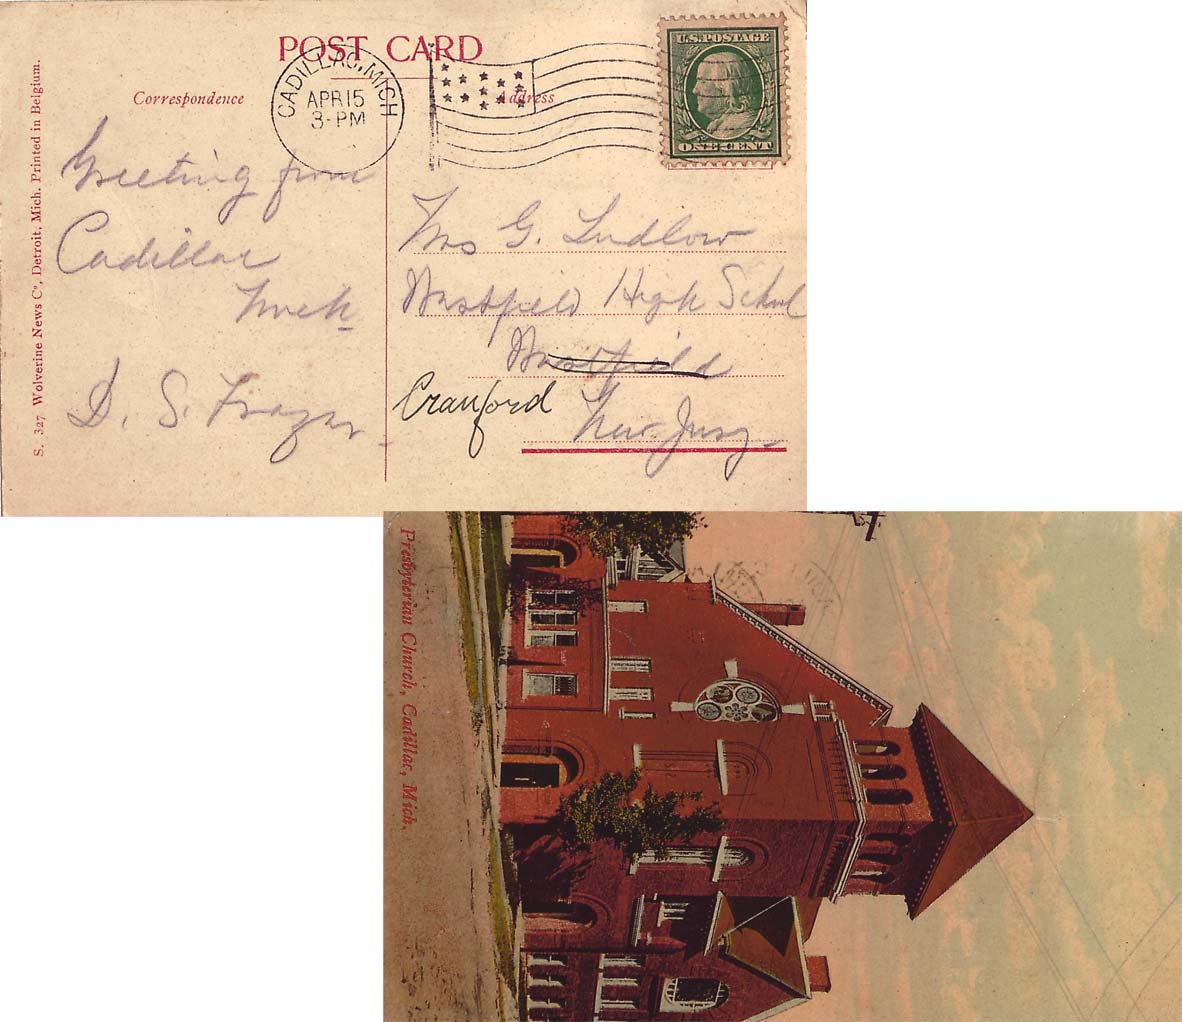 POST CARD
Correspondence
Address
CADILLAC, MICH
APR 15
3-PM
U.S. POSTAGE
ONE CENT
Greeting from
Cadillac
Mich
D. S. Frazer
G. Ludlow
Westfield High School
Westfield
Cranford
New Jersy
S. 327 Wolverine News Co, Detroit, Mich. Printed in Belgium.
Presbyterian Church, Cadillac, Mich.